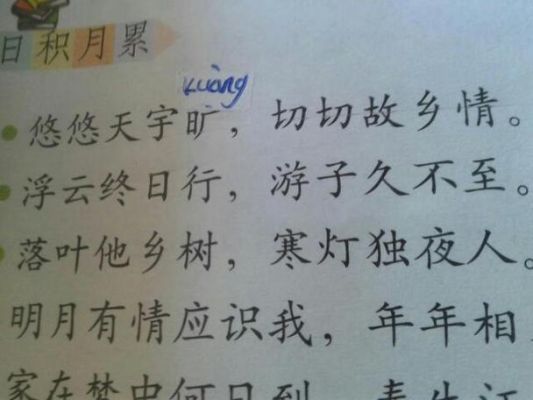 日积月累
kuàng
悠悠天宇旷，切切故乡情。
浮云终日行，游子久不至。
落叶他乡树，寒灯独夜人。
明月有情应识我，年年相
家在梦中何日到，春